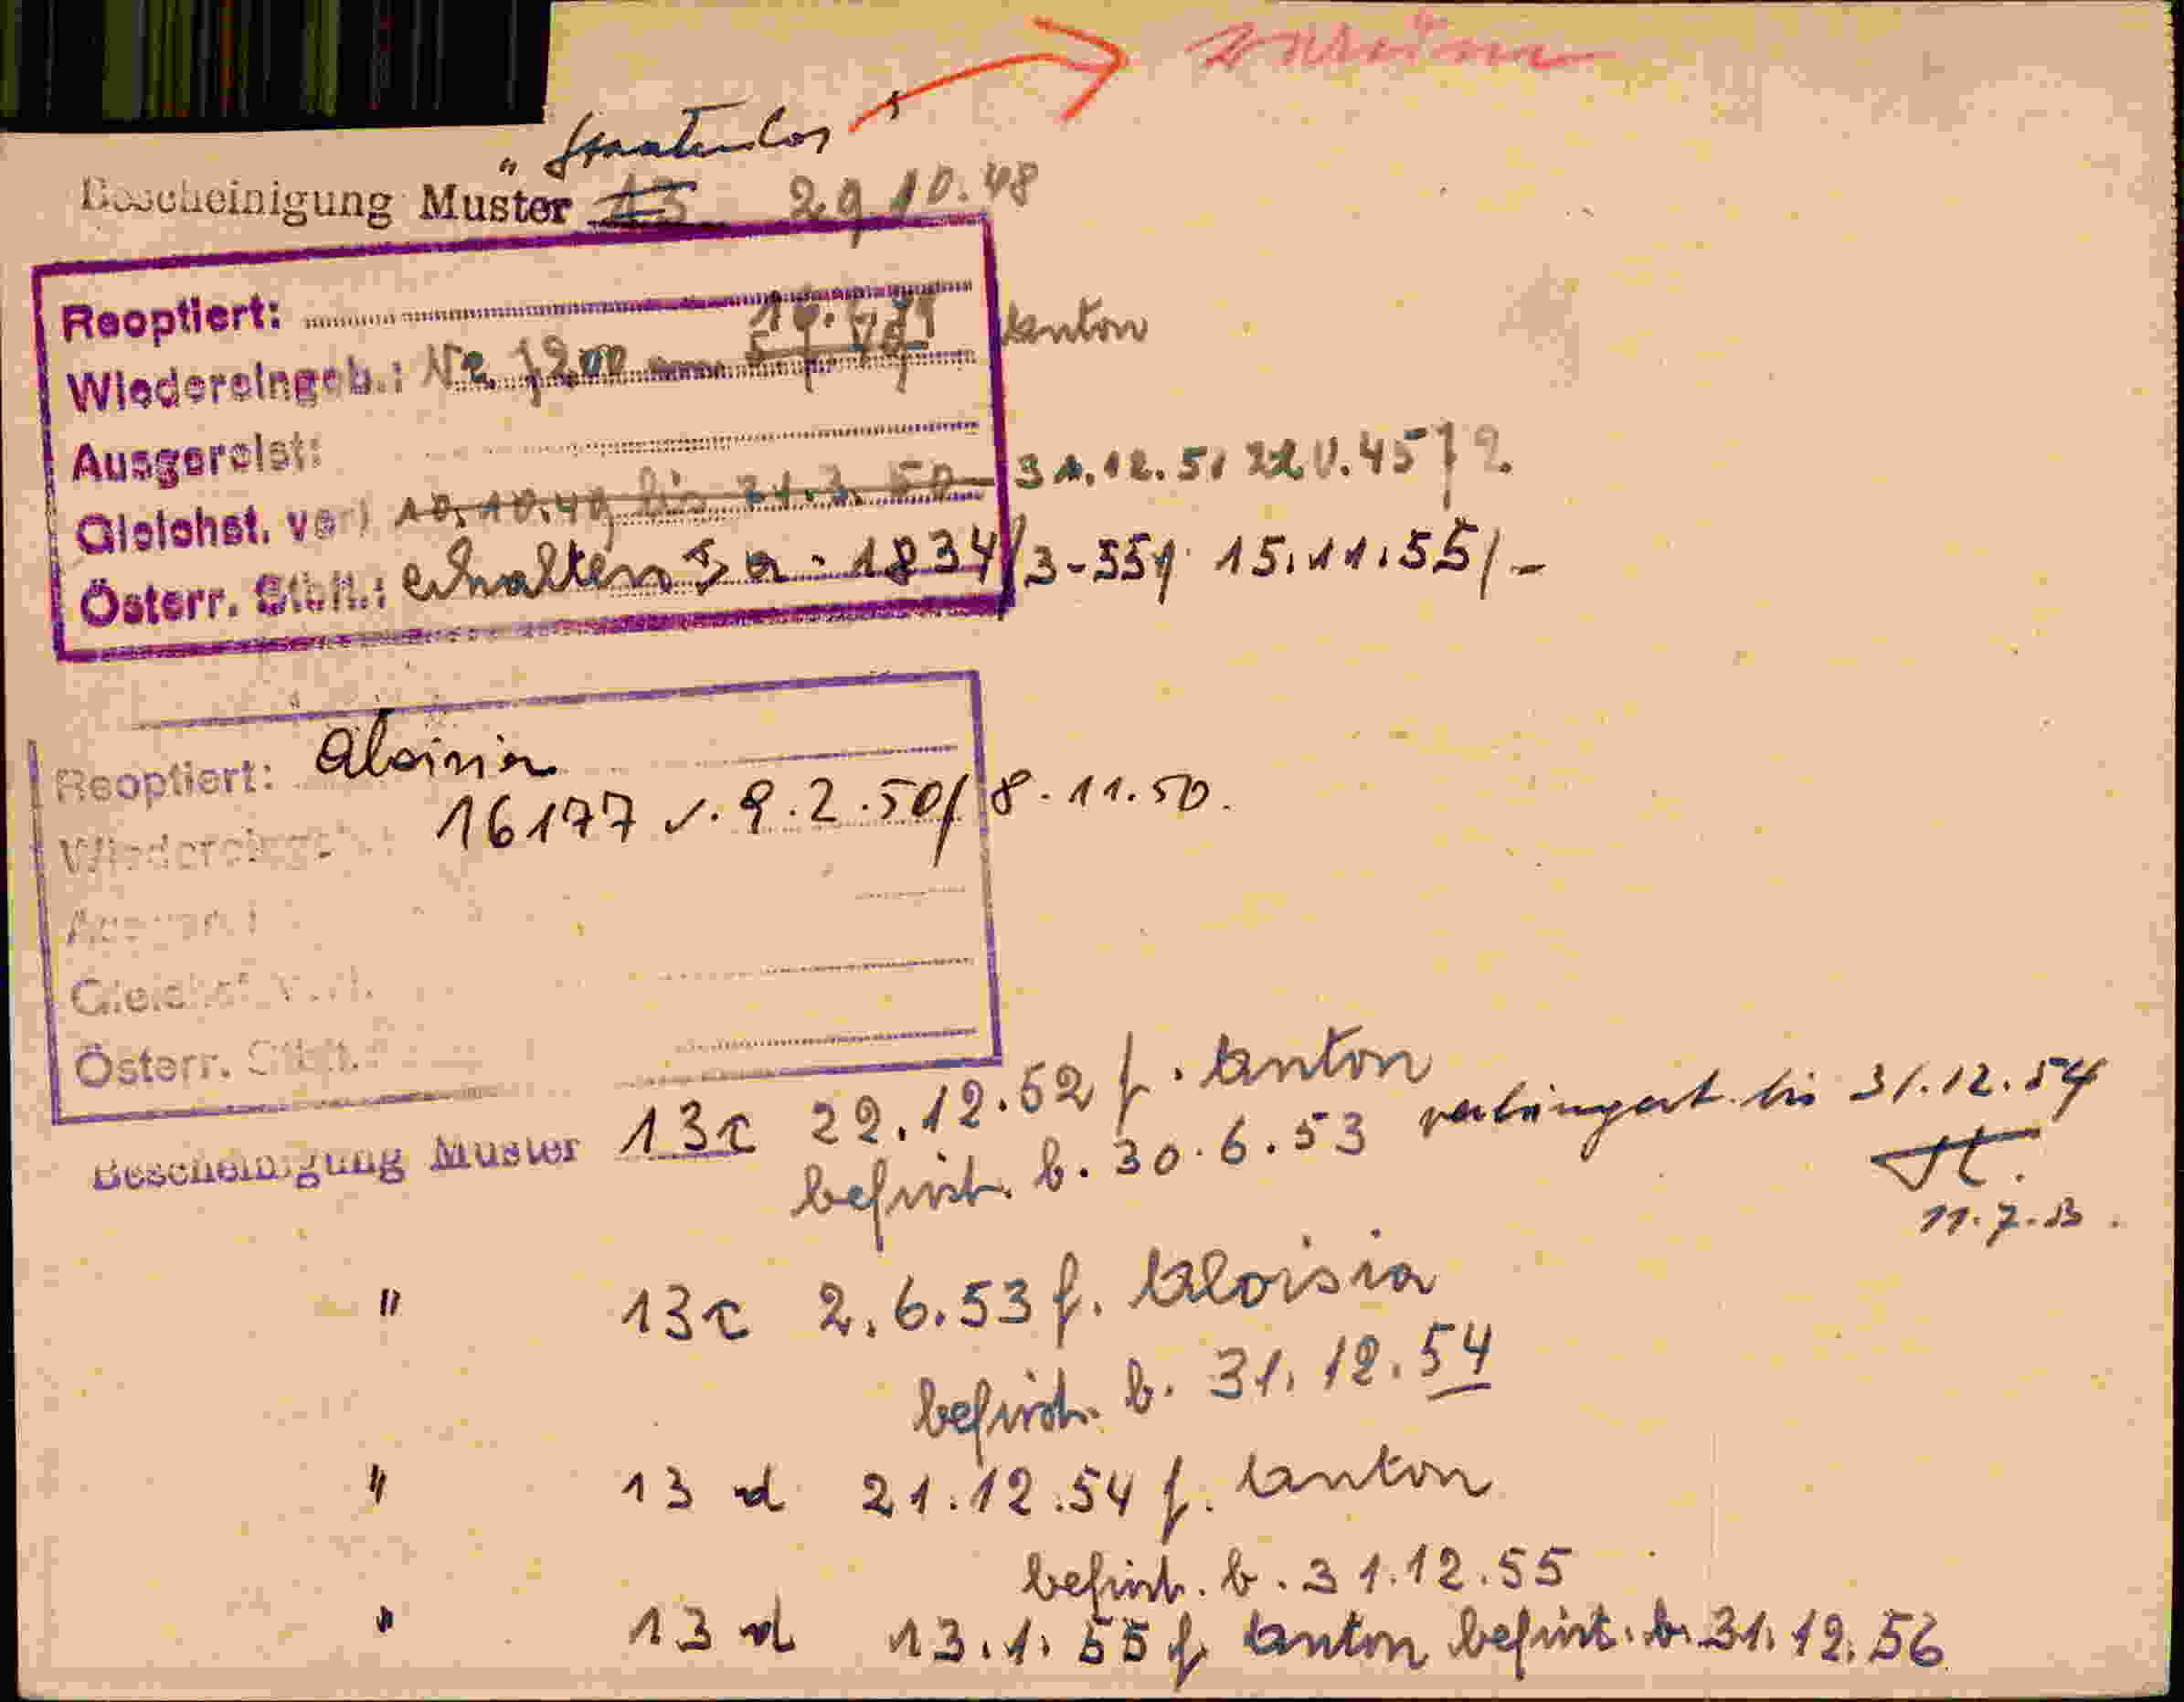 „ Staatenlos "
Bescheinigung Muster 13 29.10.48
Reoptiert:
Wiedereingeb.: Nr. 7200 Anton
Ausgereist:
Gleichst. verl. 10.10.49 bis 31.3.50 31.12.51
Österr. Stbft.: erhalten 1834/3-55/ 15.11.55/-
Reoptiert: Aloisia
Wiedereingeb.: 16177 v. 9.2.50/ 8.11.50.
Gleichst. verl.
Österr. Stbft.:
Bescheinigung Muster 13c 22.12.52 f. Anton
befrist. b. 30.6.53 verlängert bis 31.12.54
11.7.53.
" 13c 2.6.53 f. Aloisia
befrist. b. 31.12.54
" 13 d 21.12.54 f. Anton
befrist. b. 31.12.55
" 13 d 13.1.55 f. Anton befrist. b. 31.12.56